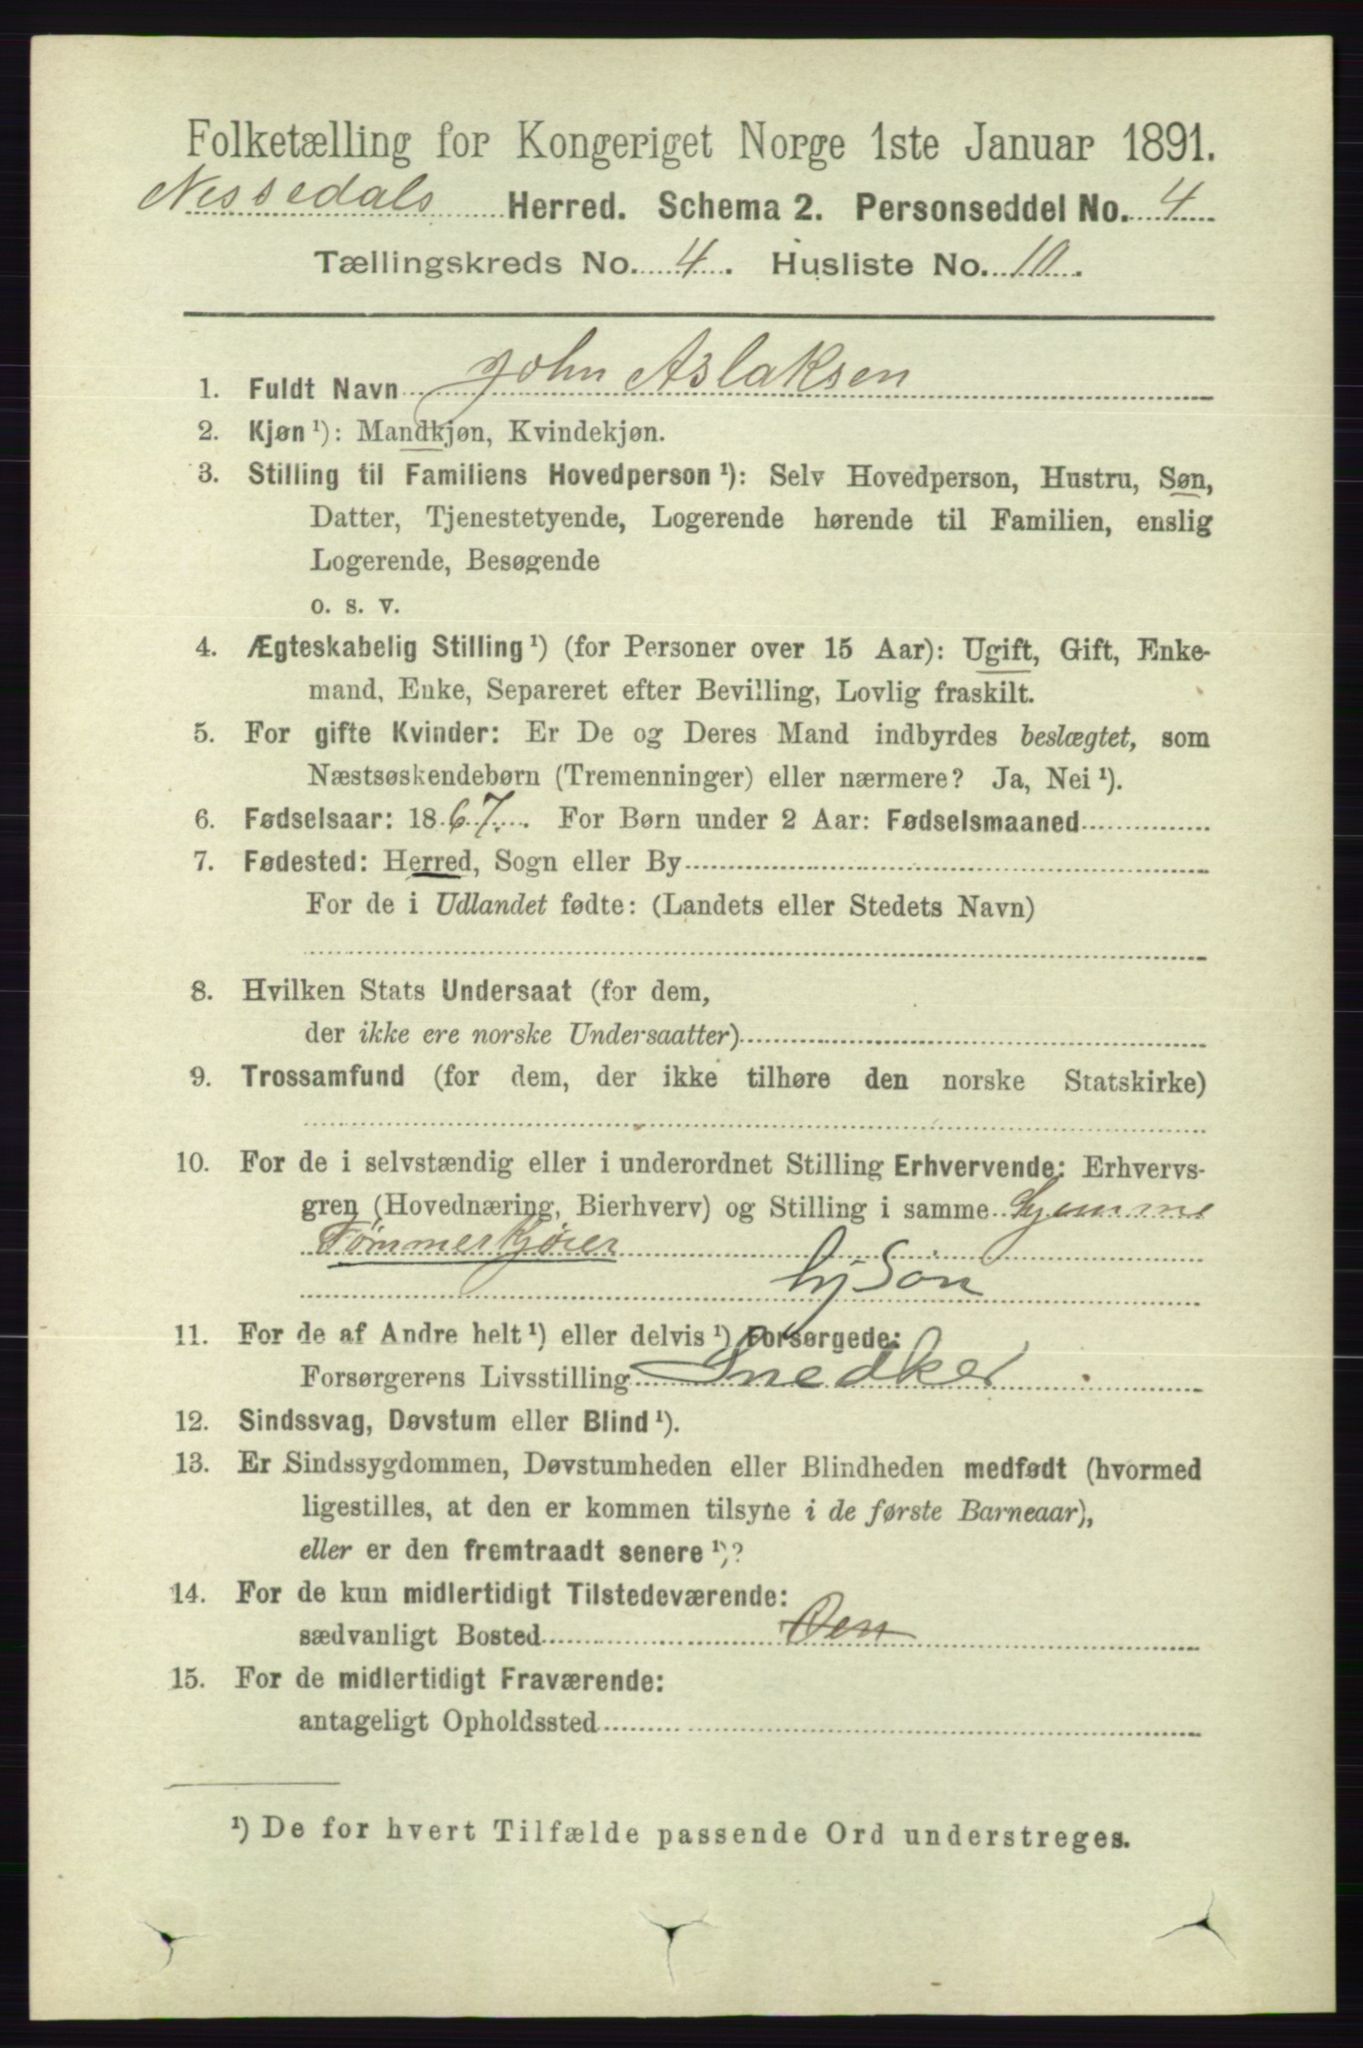 Folketælling for Kongeriget Norge 1ste Januar 1891.
Nissedals Herred. Schema 2. Personseddel No. 4
Tællingskreds No. 4. Husliste No. 10.
1. Fuldt Navn John Aslaksen
2. Kjøn ¹): Mandkjøn, Kvindekjøn.
3. Stilling til Familiens Hovedperson ¹): Selv Hovedperson, Hustru, Søn,
Datter, Tjenestetyende, Logerende hørende til Familien, enslig
Logerende, Besøgende
o. s. v.
4. Ægteskabelig Stilling ¹) (for Personer over 15 Aar): Ugift, Gift, Enke-
mand, Enke, Separeret efter Bevilling, Lovlig fraskilt.
5. For gifte Kvinder: Er De og Deres Mand indbyrdes beslægtet, som
Næstsøskendebørn (Tremenninger) eller nærmere? Ja, Nei ¹).
6. Fødselsaar: 1867. For Børn under 2 Aar: Fødselsmaaned
7. Fødested: Herred, Sogn eller By
For de i Udlandet fødte: (Landets eller Stedets Navn)
8. Hvilken Stats Undersaat (for dem,
der ikke ere norske Undersaatter)
9. Trossamfund (for dem, der ikke tilhøre den norske Statskirke)
10. For de i selvstændig eller i underordnet Stilling Erhvervende: Erhvervs-
gren (Hovednæring, Bierhverv) og Stilling i samme Hjemme
Tømmerkjører
hj Søn
11. For de af Andre helt ¹) eller delvis ¹) Forsørgede:
Forsørgerens Livsstilling Snedker
12. Sindssvag, Døvstum eller Blind ¹).
13. Er Sindssygdommen, Døvstumheden eller Blindheden medfødt (hvormed
ligestilles, at den er kommen tilsyne i de første Barneaar),
eller er den fremtraadt senere ¹)?
14. For de kun midlertidigt Tilstedeværende:
sædvanligt Bosted
15. For de midlertidigt Fraværende:
antageligt Opholdssted
¹) De for hvert Tilfælde passende Ord understreges.